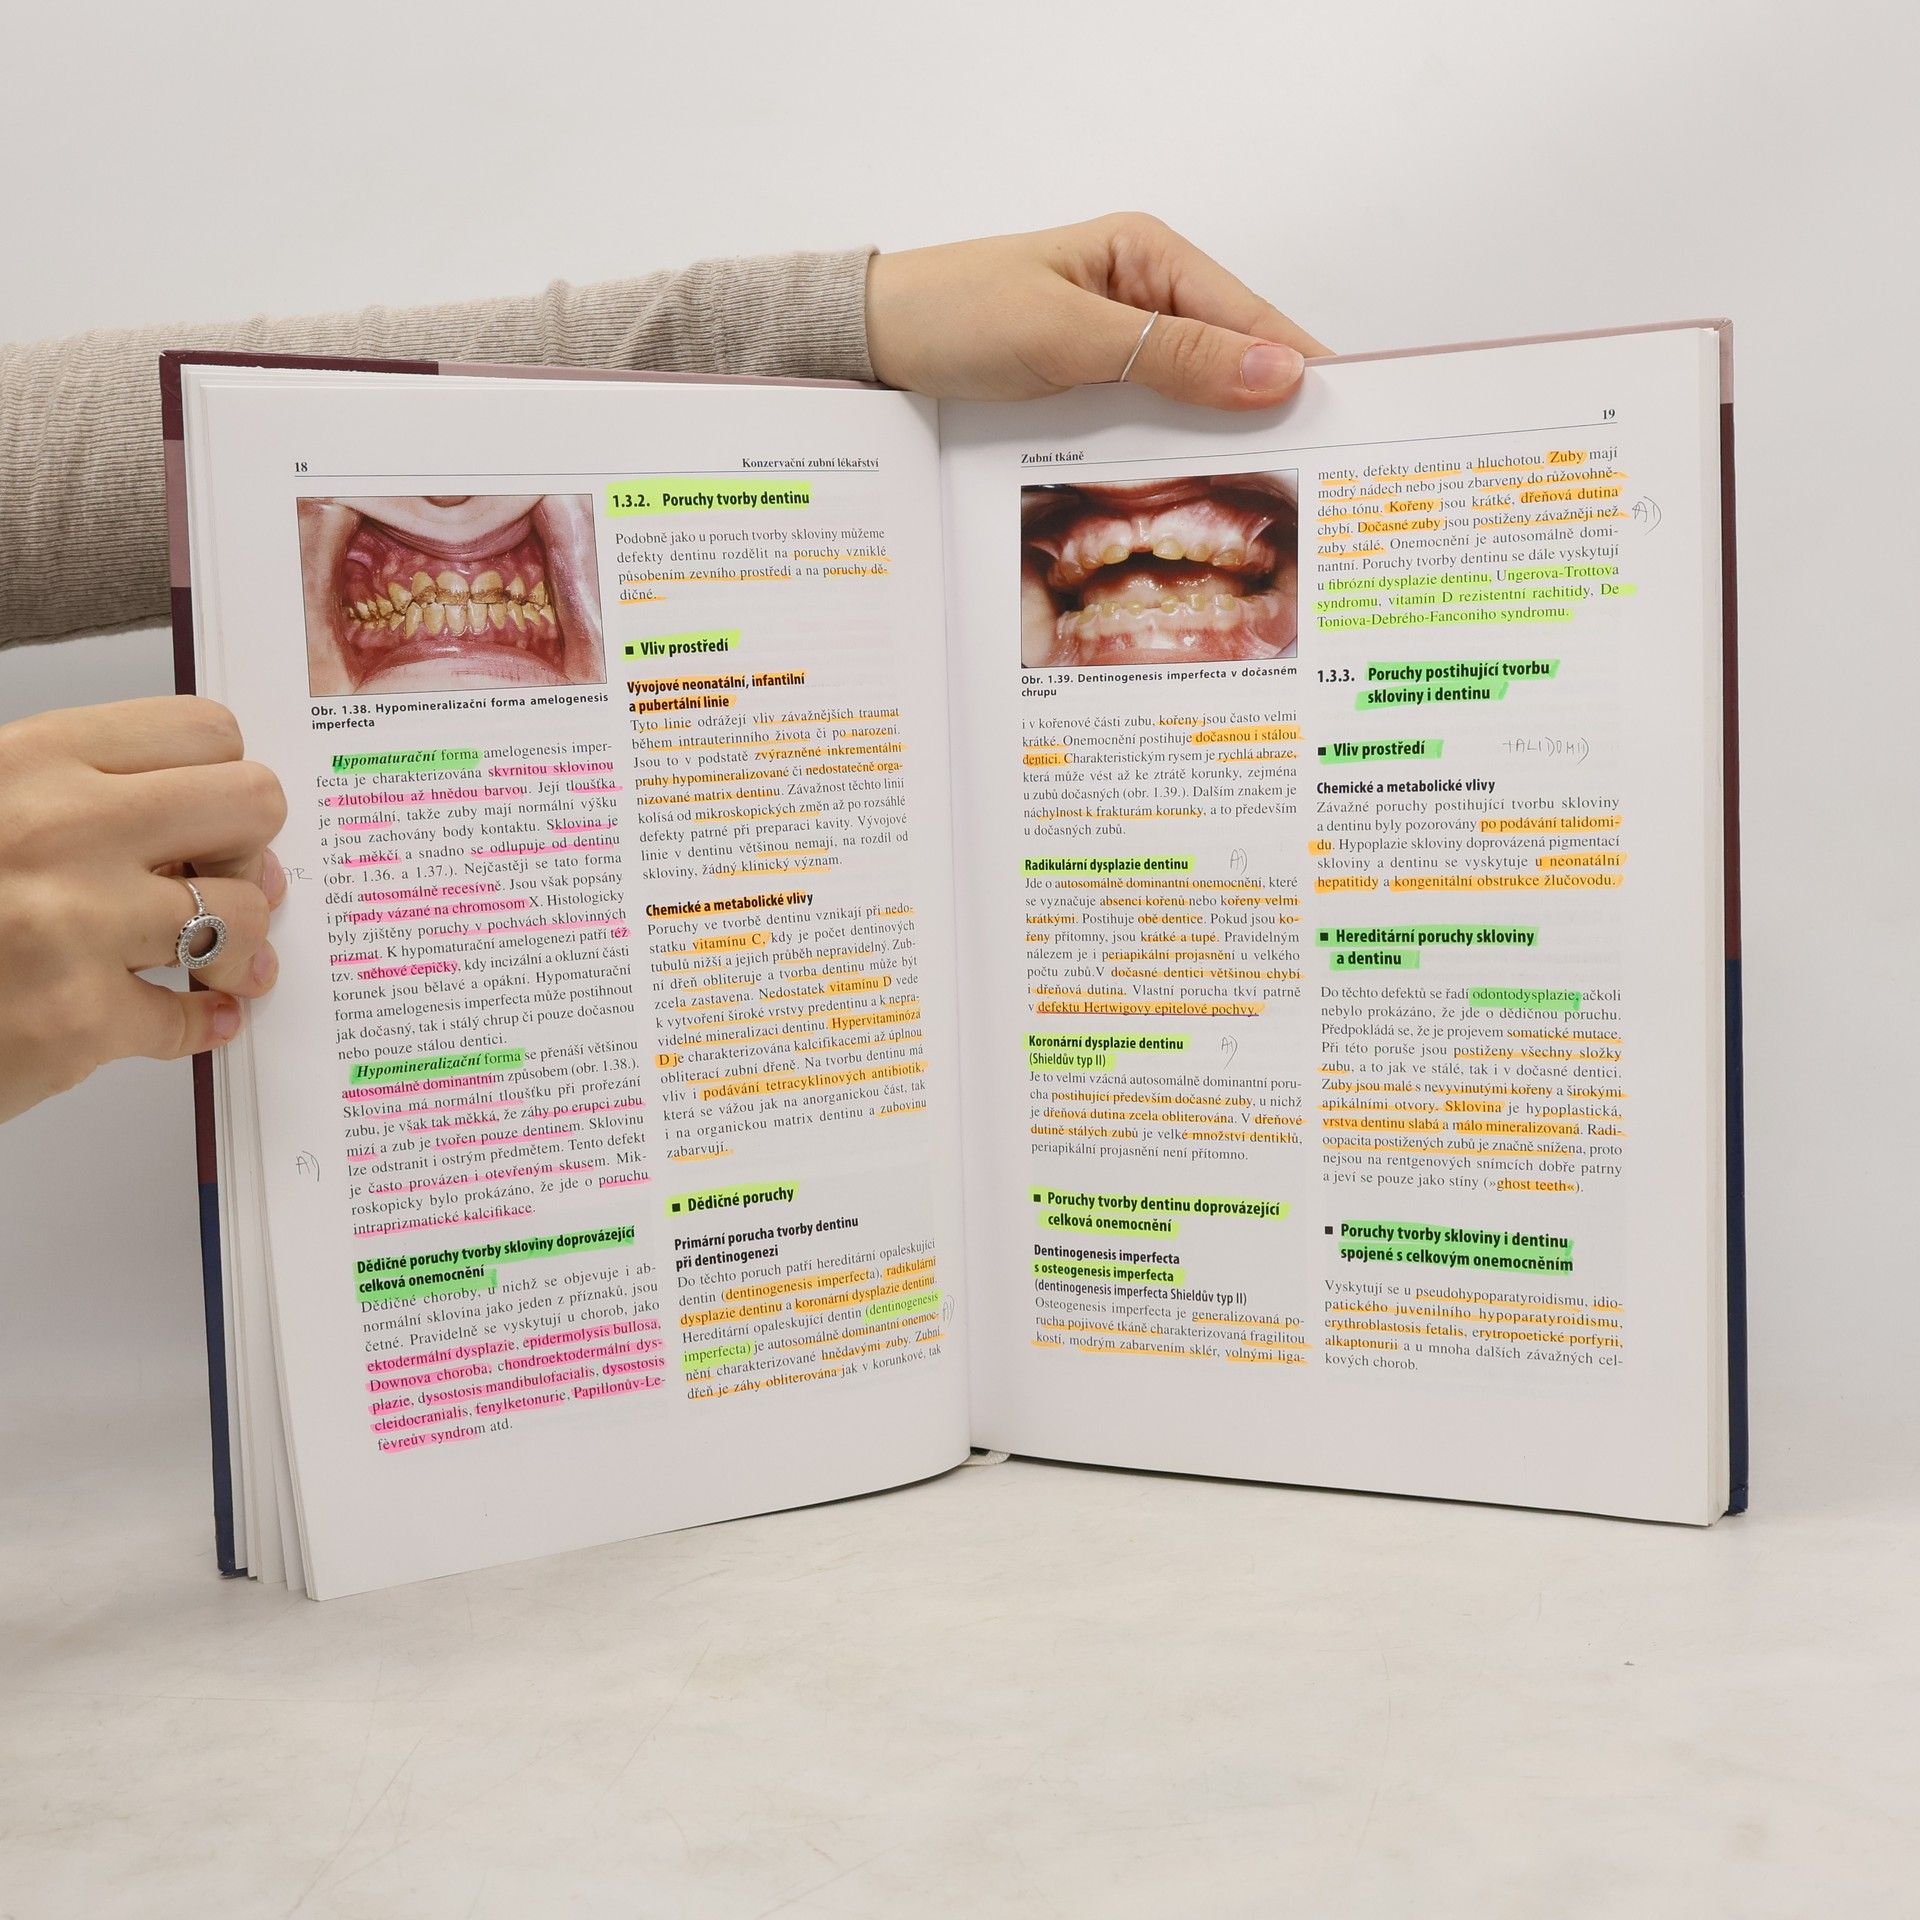 18
Konzervační zubní lékařství
Obr. 1.38. Hypomineralizační forma amelogenesis
imperfecta
Hypomaturační forma amelogenesis imper-
fecta je charakterizována skvrnitou sklovinou
se žlutobílou až hnědou barvou. Její tloušťka
je normální, takže zuby mají normální výšku
a jsou zachovány body kontaktu. Sklovina je
však měkčí a snadno se odlupuje od dentinu
(obr. 1.36. a 1.37.). Nejčastěji se tato forma
AR
dědí autosomálně recesívně. Jsou však popsány
i případy vázané na chromosom X. Histologicky
byly zjištěny poruchy v pochvách sklovinných
prizmat. K hypomaturační amelogenezi patří též
tzv. sněhové čepičky, kdy incizální a okluzní části
korunek jsou bělavé a opákní. Hypomaturační
forma amelogenesis imperfecta může postihnout
jak dočasný, tak i stálý chrup či pouze dočasnou
nebo pouze stálou dentici.
Hypomineralizační forma se přenáší většinou
autosomálně dominantním způsobem (obr. 1.38.).
Sklovina má normální tloušťku při prořezání
zubu, je však tak měkká, že záhy po erupci zubu
mizí a zub je tvořen pouze dentinem. Sklovinu
AD
lze odstranit i ostrým předmětem. Tento defekt
je často provázen i otevřeným skusem. Mik-
roskopicky bylo prokázáno, že jde o poruchu
intraprizmatické kalcifikace.
Dědičné poruchy tvorby skloviny doprovázející
celková onemocnění
Dědičné choroby, u nichž se objevuje i ab-
normální sklovina jako jeden z příznaků, jsou
četné. Pravidelně se vyskytují u chorob, jako
ektodermální dysplazie, epidermolysis bullosa,
Downova choroba, chondroektodermální dys-
plazie, dysostosis mandibulofacialis, dysostosis
cleidocranialis, fenylketonurie, Papillonův-Le-
fèvreův syndrom atd.
1.3.2. Poruchy tvorby dentinu
Podobně jako u poruch tvorby skloviny můžeme
defekty dentinu rozdělit na poruchy vzniklé
působením zevního prostředí a na poruchy dě-
dičné.
■ Vliv prostředí
Vývojové neonatální, infantilní
a pubertální linie
Tyto linie odrážejí vliv závažnějších traumat
během intrauterinního života či po narození.
Jsou to v podstatě zvýrazněné inkrementální
pruhy hypomineralizované či nedostatečně orga-
nizované matrix dentinu. Závažnost těchto linií
kolísá od mikroskopických změn až po rozsáhlé
defekty patrné při preparaci kavity. Vývojové
linie v dentinu většinou nemají, na rozdíl od
skloviny, žádný klinický význam.
Chemické a metabolické vlivy
Poruchy ve tvorbě dentinu vznikají při nedo-
statku vitaminu C, kdy je počet dentinových
tubulů nižší a jejich průběh nepravidelný. Zub-
ní dřeň obliteruje a tvorba dentinu může být
zcela zastavena. Nedostatek vitaminu D vede
k vytvoření široké vrstvy predentinu a k nepra-
videlné mineralizaci dentinu. Hypervitaminóza
D je charakterizována kalcifikacemi až úplnou
obliterací zubní dřeně. Na tvorbu dentinu má
vliv i podávání tetracyklinových antibiotik,
která se vážou jak na anorganickou část, tak
i na organickou matrix dentinu a zubovinu
zabarvují.
■ Dědičné poruchy
Primární porucha tvorby dentinu
při dentinogenezi
Do těchto poruch patří hereditární opaleskující
dentin (dentinogenesis imperfecta), radikulární
dysplazie dentinu a koronární dysplazie dentinu.
Hereditární opaleskující dentin (dentinogenesis
imperfecta) je autosomálně dominantní onemoc-
AD
nění charakterizované hnědavými zuby. Zubní
dřeň je záhy obliterována jak v korunkové, tak
Zubní tkáně
19
Obr. 1.39. Dentinogenesis imperfecta v dočasném
chrupu
i v kořenové části zubu, kořeny jsou často velmi
krátké. Onemocnění postihuje dočasnou i stálou
dentici. Charakteristickým rysem je rychlá abraze,
která může vést až ke ztrátě korunky, zejména
u zubů dočasných (obr. 1.39.). Dalším znakem je
náchylnost k frakturám korunky, a to především
u dočasných zubů.
Radikulární dysplazie dentinu
AD
Jde o autosomálně dominantní onemocnění, které
se vyznačuje absencí kořenů nebo kořeny velmi
krátkými. Postihuje obě dentice. Pokud jsou ko-
řeny přítomny, jsou krátké a tupé. Pravidelným
nálezem je i periapikální projasnění u velkého
počtu zubů.V dočasné dentici většinou chybí
i dřeňová dutina. Vlastní porucha tkví patrně
v defektu Hertwigovy epitelové pochvy.
Koronární dysplazie dentinu
AD
(Shieldův typ II)
Je to velmi vzácná autosomálně dominantní poru-
cha postihující především dočasné zuby, u nichž
je dřeňová dutina zcela obliterována. V dřeňové
dutině stálých zubů je velké množství dentiklů,
periapikální projasnění není přítomno.
■ Poruchy tvorby dentinu doprovázející
celková onemocnění
Dentinogenesis imperfecta
s osteogenesis imperfecta
(dentinogenesis imperfecta Shieldův typ II)
Osteogenesis imperfecta je generalizovaná po-
rucha pojivové tkáně charakterizovaná fragilitou
kostí, modrým zabarvením sklér, volnými liga-
menty, defekty dentinu a hluchotou. Zuby mají
modrý nádech nebo jsou zbarveny do růžovohně-
dého tónu. Kořeny jsou krátké, dřeňová dutina
chybí. Dočasné zuby jsou postiženy závažněji než
AD
zuby stálé. Onemocnění je autosomálně domi-
nantní. Poruchy tvorby dentinu se dále vyskytují
u fibrózní dysplazie dentinu, Ungerova-Trottova
syndromu, vitamin D rezistentní rachitidy, De
Toniova-Debrého-Fanconiho syndromu.
1.3.3. Poruchy postihující tvorbu
skloviny i dentinu
■ Vliv prostředí
TALIDOMID
Chemické a metabolické vlivy
Závažné poruchy postihující tvorbu skloviny
a dentinu byly pozorovány po podávání talidomi-
du. Hypoplazie skloviny doprovázená pigmentací
skloviny a dentinu se vyskytuje u neonatální
hepatitidy a kongenitální obstrukce žlučovodu.
■ Hereditární poruchy skloviny
a dentinu
Do těchto defektů se řadí odontodysplazie, ačkoli
nebylo prokázáno, že jde o dědičnou poruchu.
Předpokládá se, že je projevem somatické mutace.
Při této poruše jsou postiženy všechny složky
zubu, a to jak ve stálé, tak i v dočasné dentici.
Zuby jsou malé s nevyvinutými kořeny a širokými
apikálními otvory. Sklovina je hypoplastická,
vrstva dentinu slabá a málo mineralizovaná. Radi-
oopacita postižených zubů je značně snížena, proto
nejsou na rentgenových snímcích dobře patrny
a jeví se pouze jako stíny (»ghost teeth«).
■ Poruchy tvorby skloviny i dentinu
spojené s celkovým onemocněním
Vyskytují se u pseudohypoparatyroidismu, idio-
patického juvenilního hypoparatyroidismu,
erythroblastosis fetalis, erytropoetické porfyrii,
alkaptonurii a u mnoha dalších závažných cel-
kových chorob.